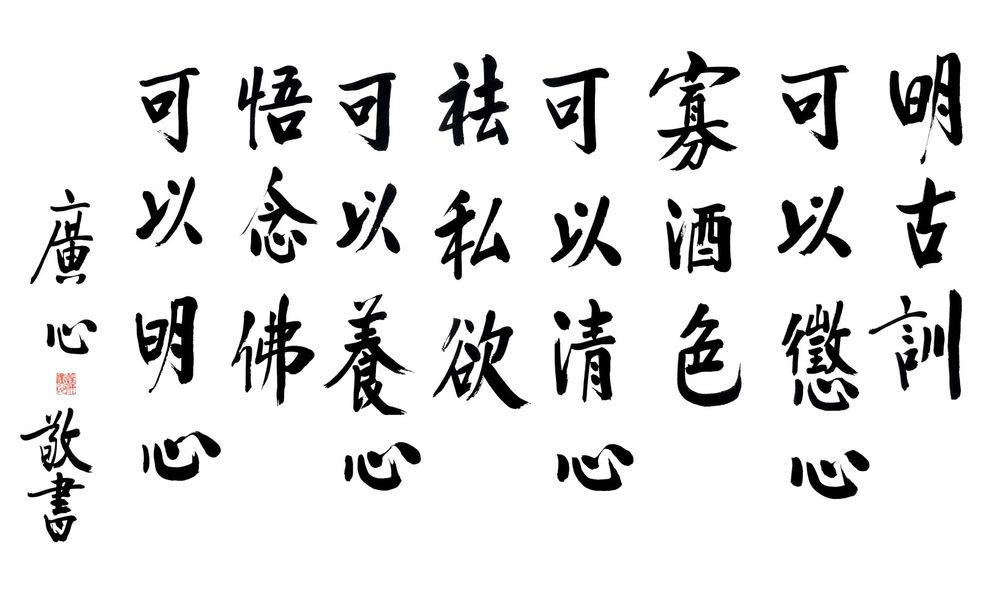 明古訓
可以懲心
寡酒色
可以清心
祛私欲
可以養心
悟念佛
可以明心
廣心
敬書